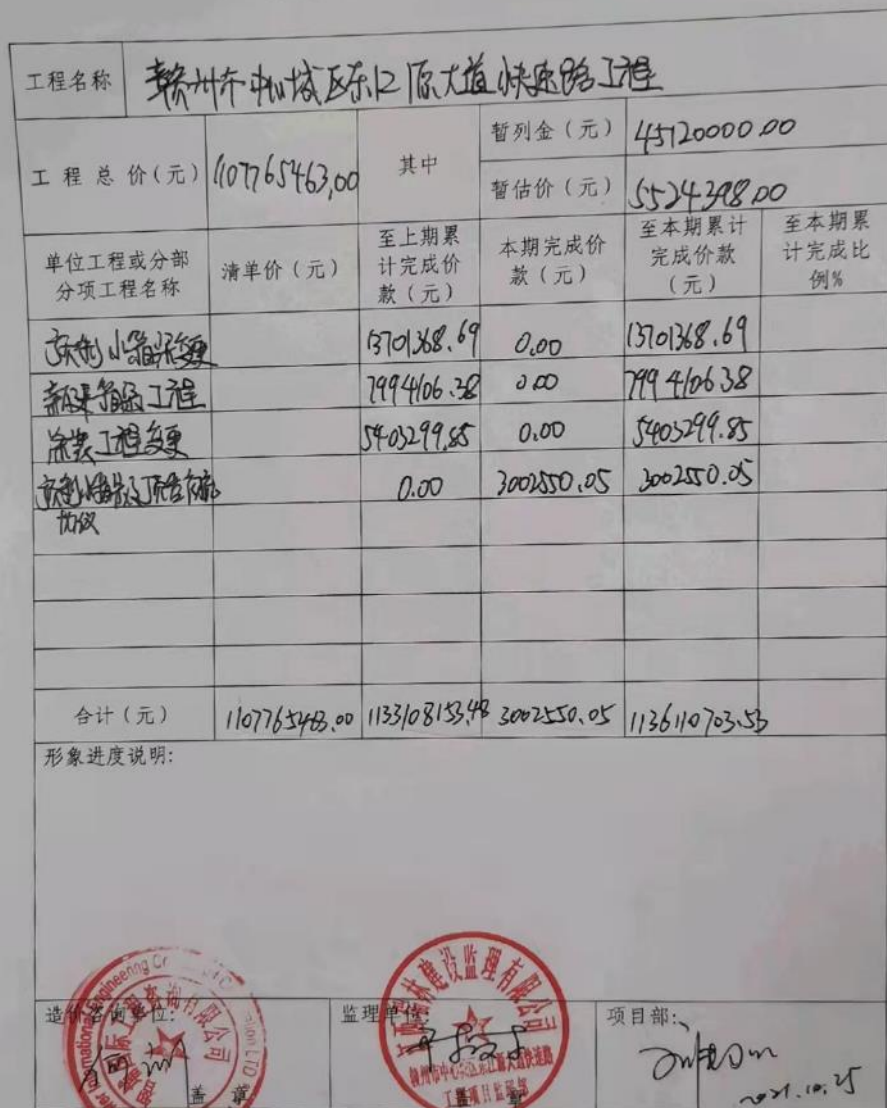 工程名称 赣州市中心城区东江源大道快速路工程
工程总价(元) 1107765463.00 其中 暂列金(元) 45120000.00
暂估价(元) 5524398.00
单位工程或分部分项工程名称 清单价(元) 至上期累计完成价款(元) 本期完成价款(元) 至本期累计完成价款(元) 至本期累计完成比例%
预制小箱梁变更 13701368.69 0.00 13701368.69
钢箱梁工程 7994106.38 0.00 7994106.38
涂装工程变更 5403299.85 0.00 5403299.85
预制小箱梁及 0.00 3002550.05 3002550.05
协议
合计(元) 1107765463.00 1133108153.48 3002550.05 1136110703.53
形象进度说明:
造价咨询单位: 监理单位: 项目部:
盖章 盖章
2021.10.25
建设监理有限公司
赣州市中心城区东江源大道快速路
工程项目监理部